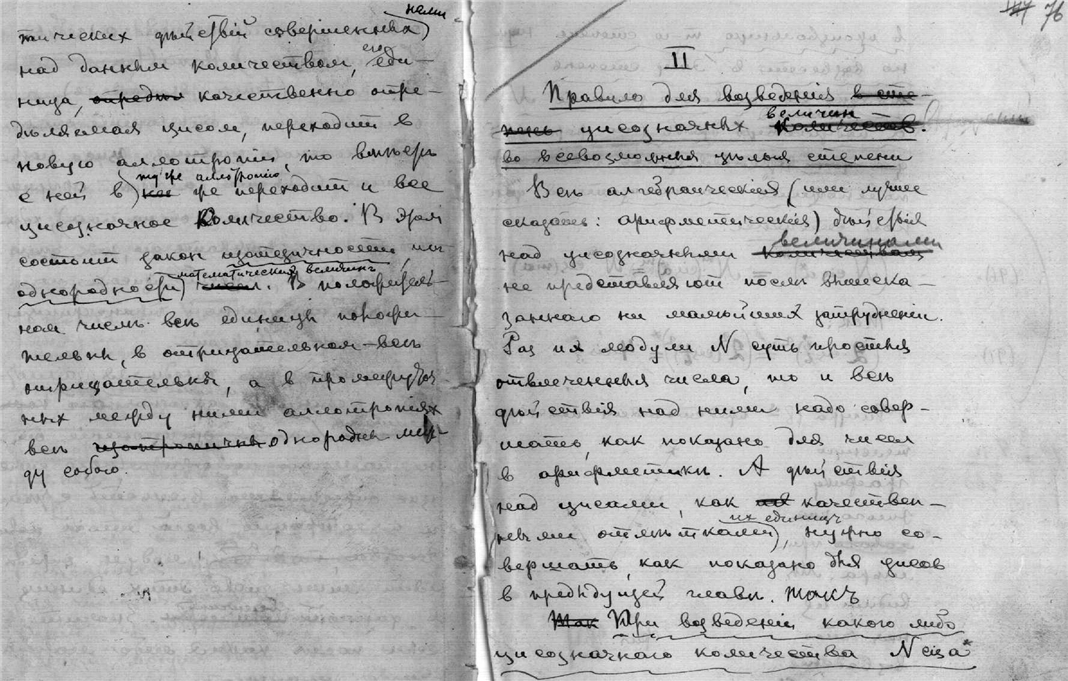 тическихъ дѣйствій совершенныхъ нами
надъ даннымъ количествомъ, его еди-
ница, опредѣл качественно опре-
дѣляемая цисомъ, переходитъ въ
новую аллотропію, то вмѣстѣ
съ ней въ ту же аллотропію же переходитъ и все
цисозначное количество. Въ этомъ
состоитъ законъ изотопичности или
однородности математическихъ величинъ. Въ положитель-
номъ числѣ всѣ единицы положи-
тельны, въ отрицательномъ – всѣ
отрицательны, а въ промежуточ
ныхъ между ними аллотропіяхъ
всѣ однородны меж-
ду собою.
76
II
Правило для возведенія в сте-
пень цисозначныхъ величин количеств.
во всевозможныя цѣлыя степени
Всѣ алгебраическія (или лучше
сказать: арифметическія) дѣйствія
надъ цисозначными величинами количествами
не представляютъ послѣ вышеска-
заннаго ни малѣйшихъ затрудненій.
Разъ ихъ модули N суть простыя
отвлеченныя числа, то и всѣ
дѣйствія надъ ними надо совер-
шать, какъ показано для чиселъ
въ арифметикѣ. А дѣйствія
надъ цисами, какъ качествен-
ными отмѣтками ихъ единицъ, нужно со-
вершать, какъ показано для цисовъ
въ предыдущей главѣ. такъ
Так При возведеніи какого либо
цисозначнаго количества N